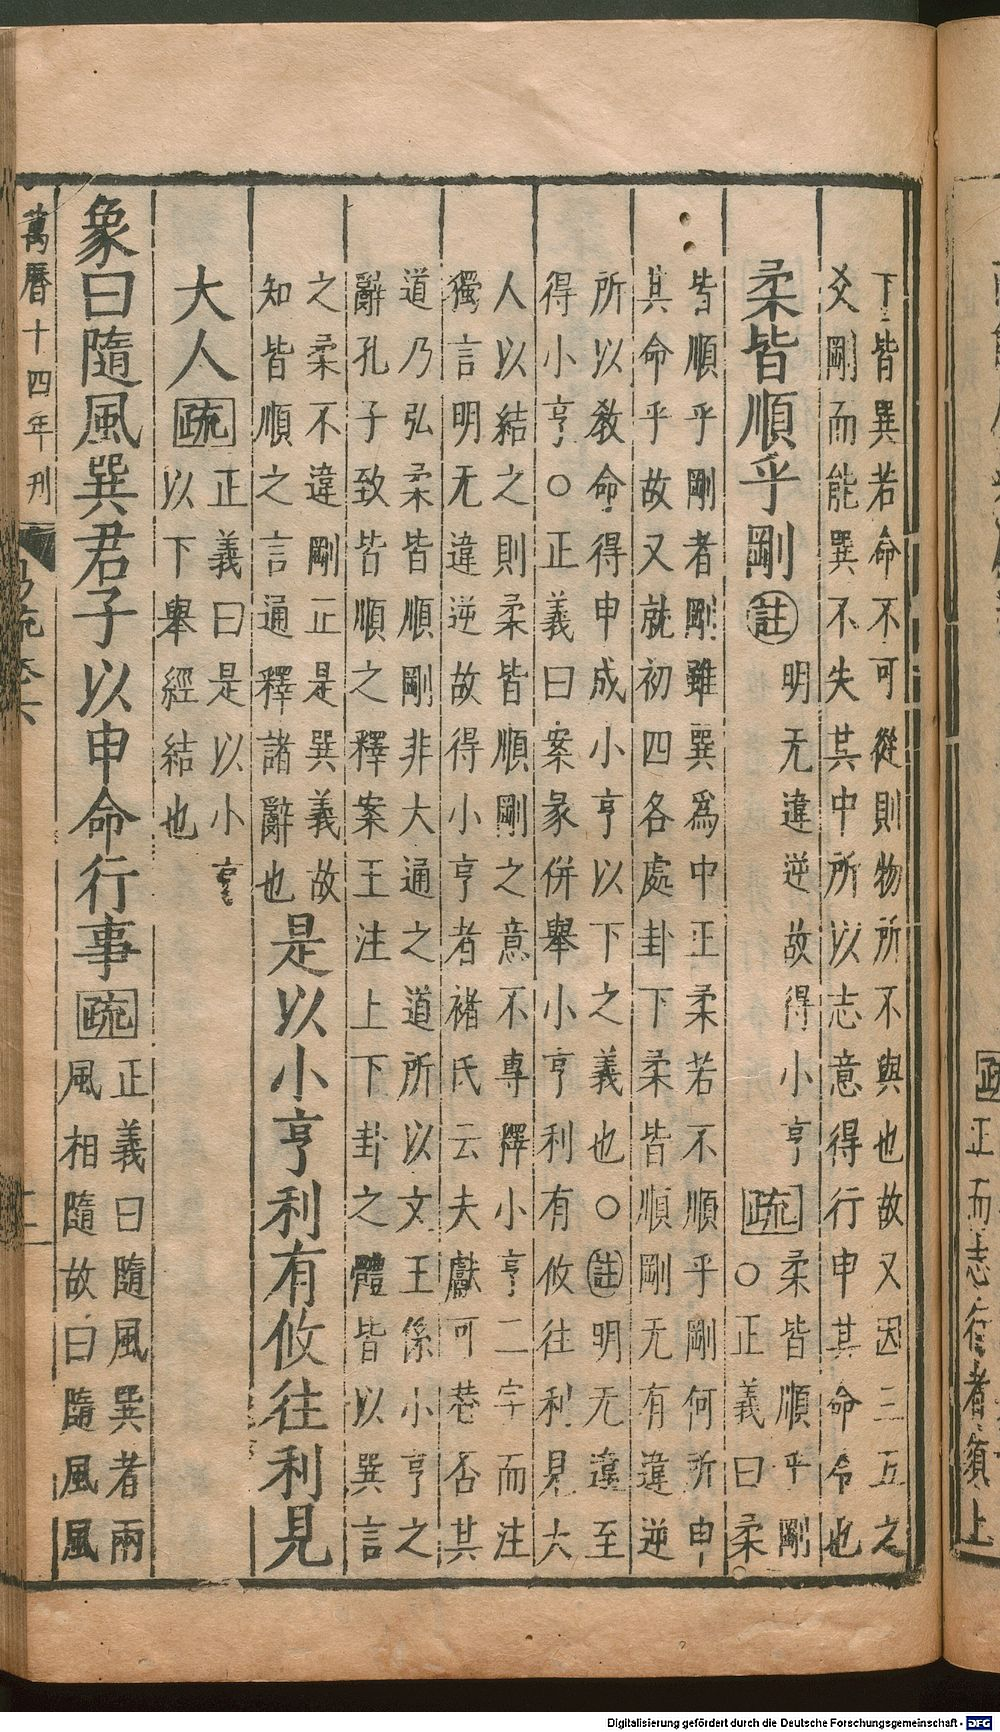 下皆巽若命不可從則物所不與也故又因三五之
爻剛而能巽不失其中所以志意得行申其命令也
柔皆順乎剛
註
明无違逆故得小亨
疏
柔皆順乎剛
○正義曰柔
皆順乎剛者剛雖巽爲中正柔若不順乎剛何所申
其命乎故又就初四各處卦下柔皆順剛无有違逆
所以教命得申成小亨以下之義也○註明无違至
得小亨○正義曰案彖併舉小亨利有攸往利見大
人以結之則柔皆順剛之意不專釋小亨二字而注
獨言明无違逆故得小亨者褚氏云夫獻可替否其
道乃弘柔皆順剛非大通之道所以文王係小亨之
辭孔子致皆順之釋案王注上下卦之體皆以巽言
之柔不違剛正是巽義故
知皆順之言通釋諸辭也
是以小亨利有攸往利見
大人
疏
正義曰是以小亨
以下舉經結也
象曰隨風巽君子以申命行事
疏
正義曰隨風巽者兩
風相隨故曰隨風風
萬曆十四年刊
易疏卷六
正而志行者須上
Digitalisierung gefördert durch die Deutsche Forschungsgemeinschaft - DFG